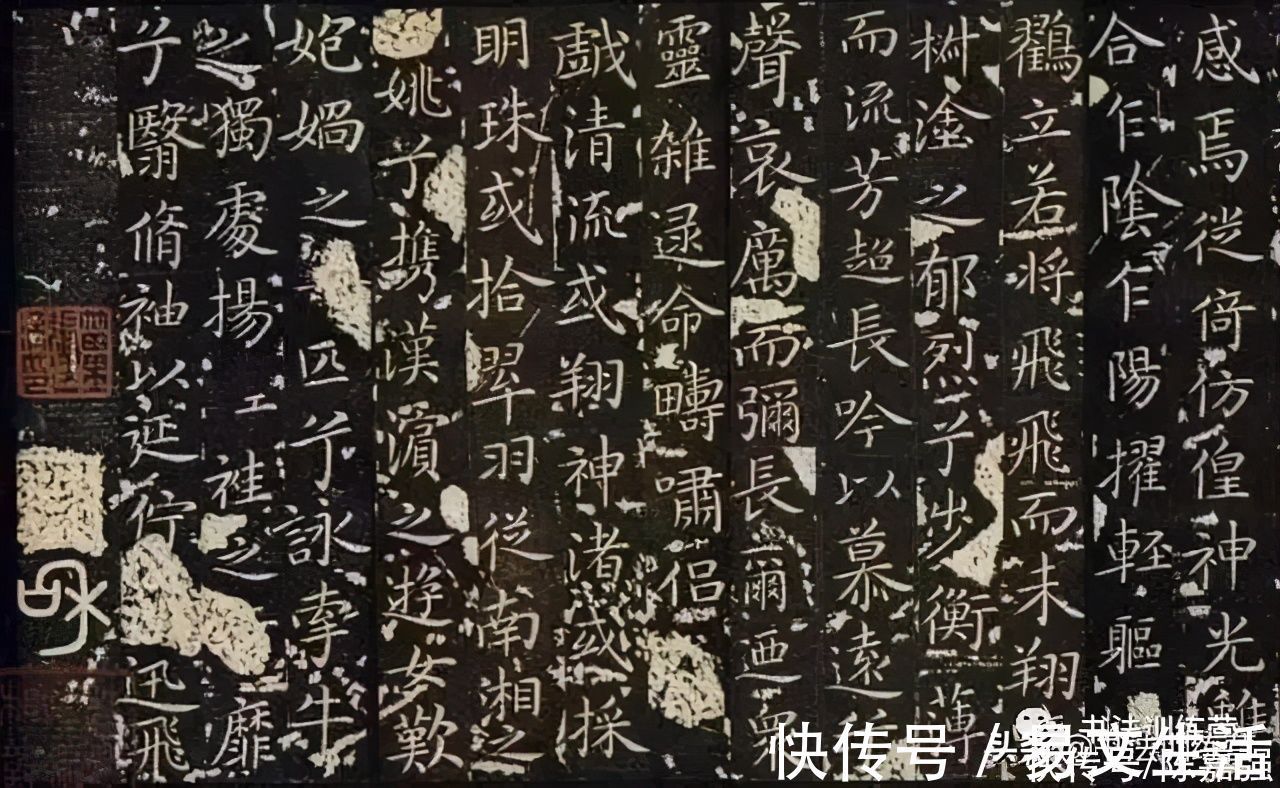 感焉徙倚仿偟神光離
合乍陰乍陽擢輕軀
鸖立若将飛飛而未翔
椒塗之郁烈兮步衡薄
而流芳超長吟以慕遠
聲哀厲而彌長爾迺衆
靈雜遝命疇嘯侣
戯清流或翔神渚或採
明珠或拾翠羽從南湘之
姚兮携漢濱之遊女歎
匏媧之匹兮詠牽牛
之獨處揚袿之靡
兮翳脩袖以延佇迅飛
快传号